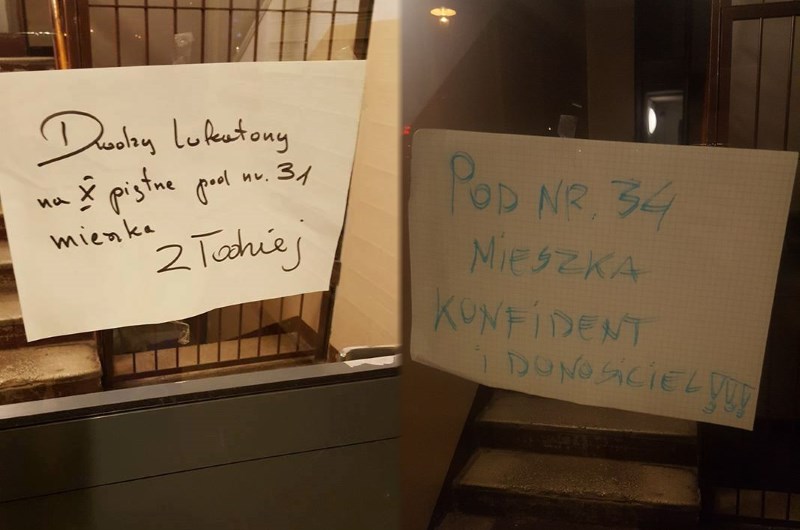 Drodzy Lokatorzy
na X piętrze pod nr. 31
mieszka
Złodziej
POD NR. 34
MIESZKA
KONFIDENT
i DONOSICIEL!!!